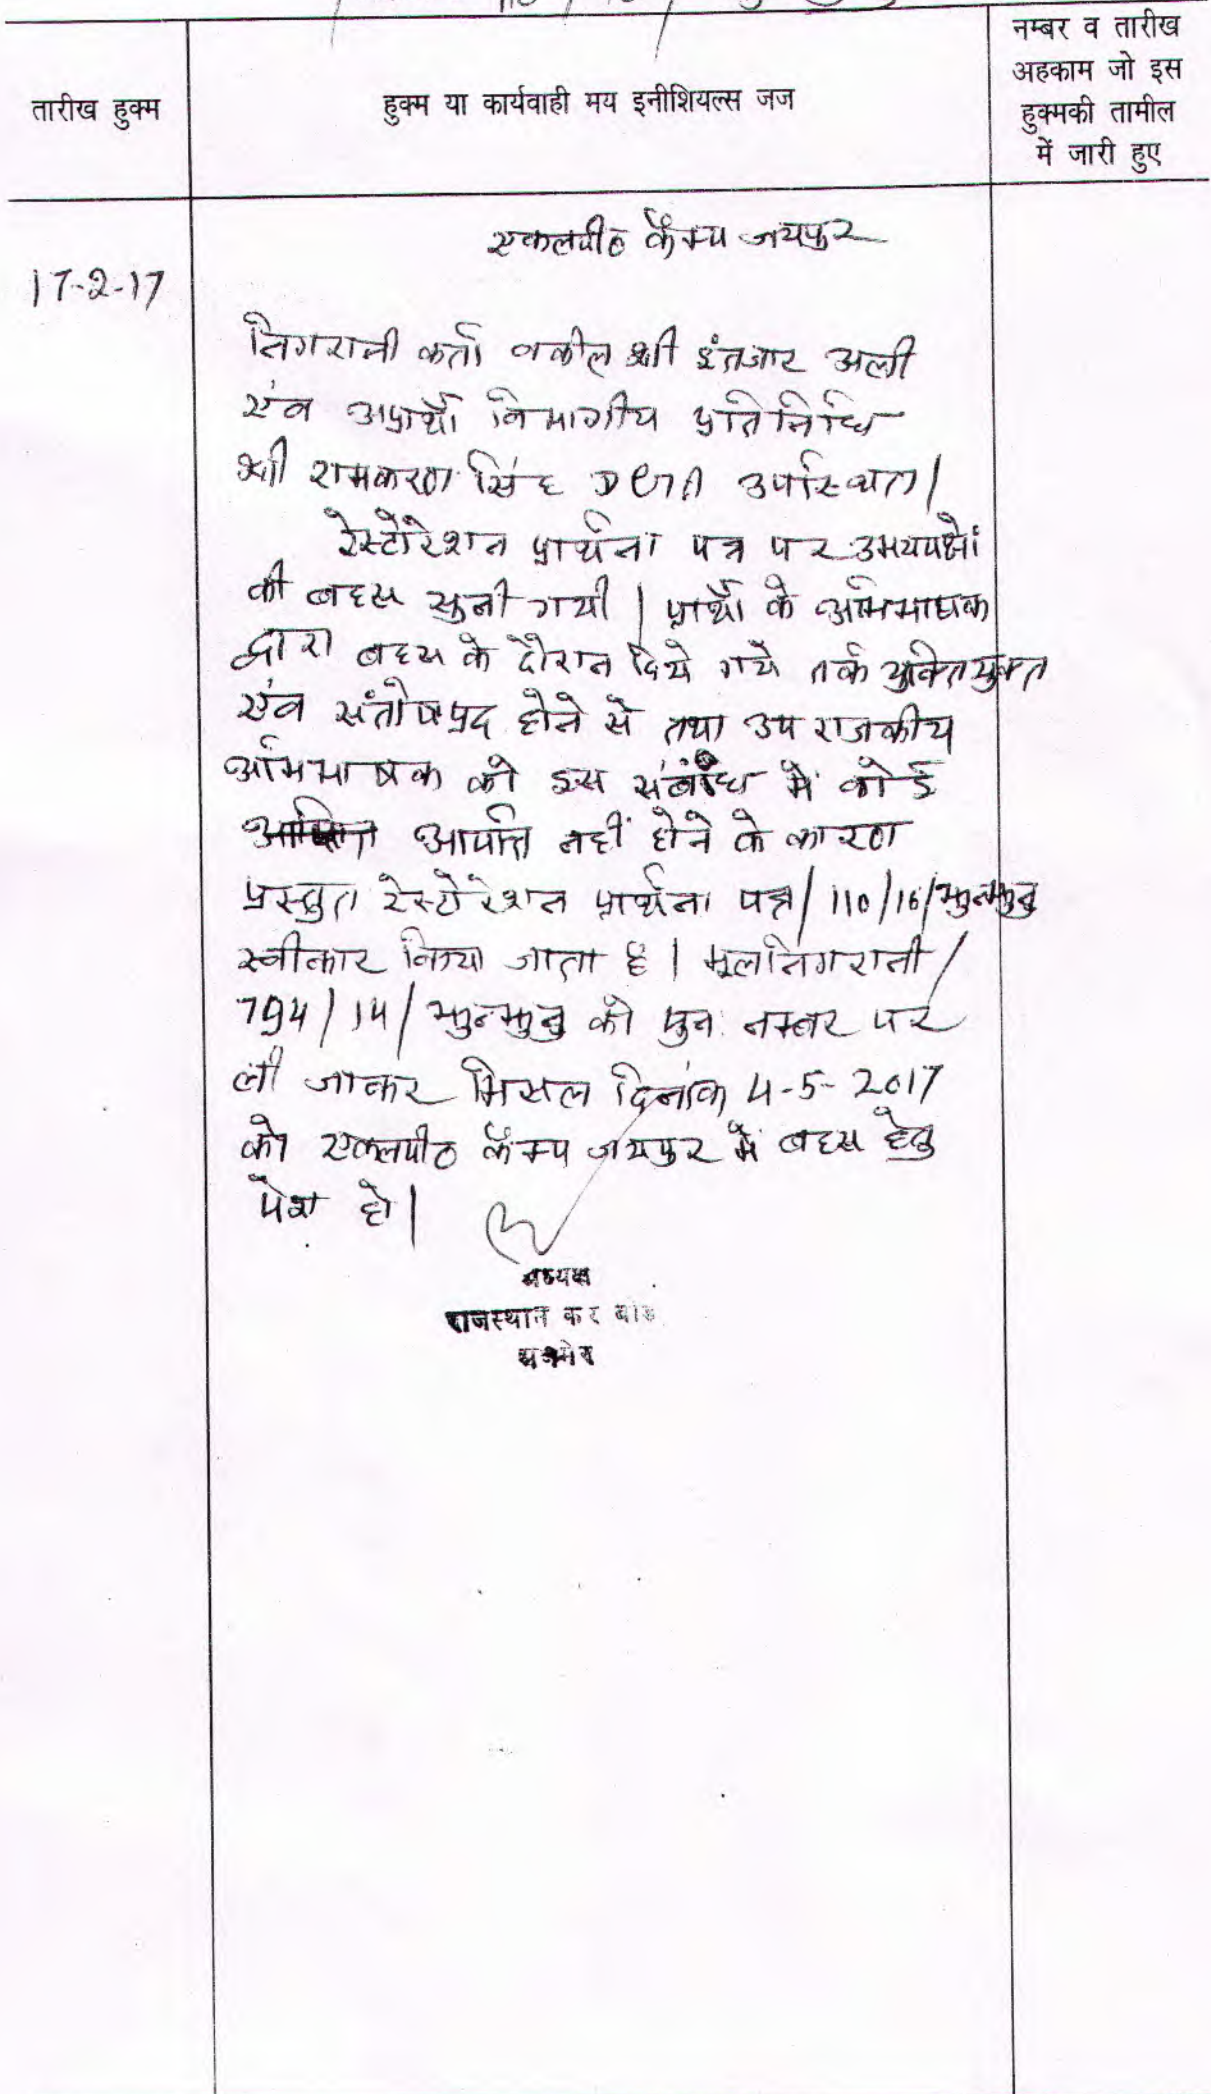 तारीख हुक्म
हुक्म या कार्यवाही मय इनीशियल्स जज
नम्बर व तारीख
अहकाम जो इस
हुक्मकी तामील
में जारी हुए
एकलपीठ कैम्प जयपुर
17-2-17
निगरानी कर्ता वकील श्री इंतजार अली
एंव अप्रार्थी विभागीय प्रतिनिधि
श्री रामकरण सिंह उपस्थित।
रेस्टोरेशन प्रार्थना पत्र पर उभयपक्षों
की बहस सुनी गयी। प्रार्थी के अभिभाषक
द्वारा बहस के दौरान दिये गये तर्क युक्तियुक्त
एंव संतोषप्रद होने से तथा उप राजकीय
अभिभाषक को इस संबंध में कोई
आपत्ति नहीं होने के कारण
प्रस्तुत रेस्टोरेशन प्रार्थना पत्र/110/16/झुन्झुनु
स्वीकार किया जाता है। मूलनिगरानी/
794/14/झुन्झुनु को पुनः नम्बर पर
ली जाकर मिसल दिनांक 4-5-2017
को एकलपीठ कैम्प जयपुर में बहस हेतु
पेश हो।
अध्यक्ष
राजस्थान कर बोर्ड
अजमेर